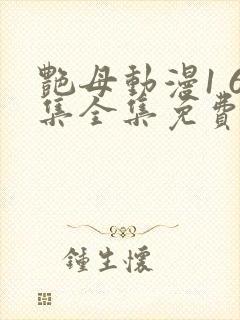 艷母動漫1 6
集全集免費
鍾生懷